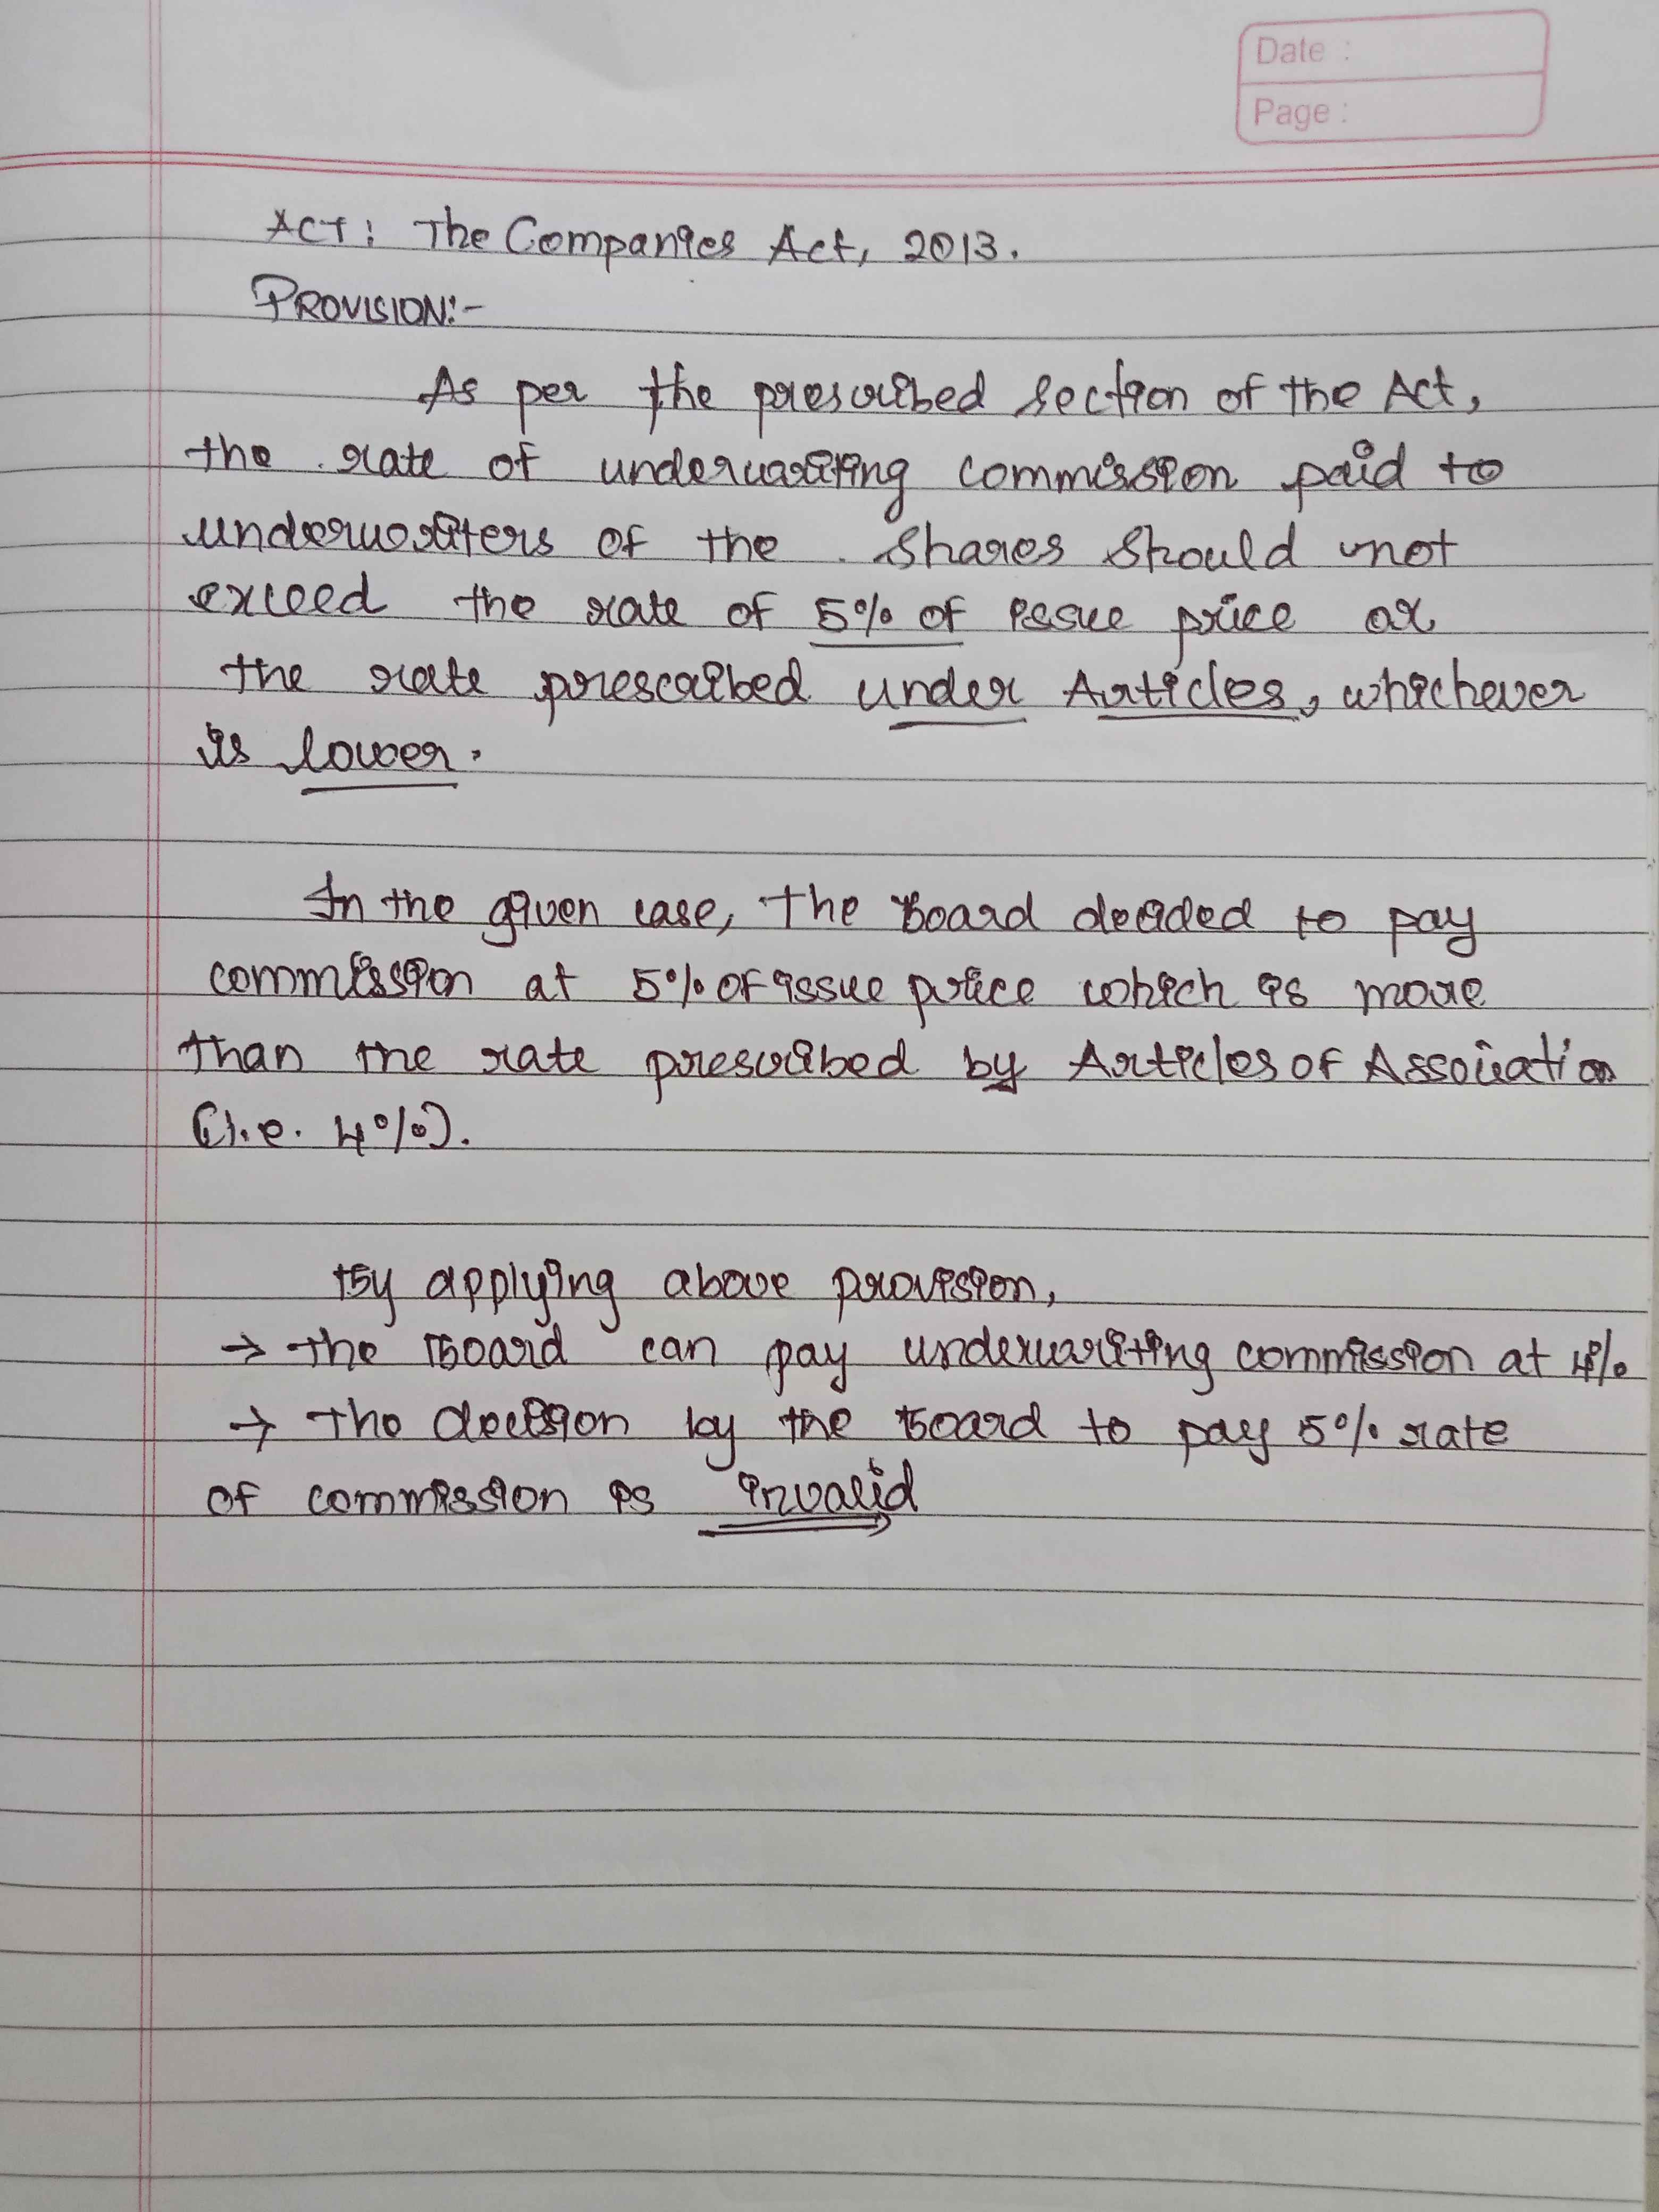 Date :
Page :
ACT: The Companies Act, 2013.
PROVISION:-
As per the prescribed section of the Act,
the rate of underwriting commission paid to
underwriters of the shares should not
exceed the rate of 5% of issue price or
the rate prescribed under Articles, whichever
is lower.
In the given case, the Board decided to pay
commission at 5% of issue price which is more
than the rate prescribed by Articles of Association
(i.e. 4%).
By applying above provision,
→ the Board can pay underwriting commission at 4%
→ The decision by the Board to pay 5% rate
of commission is invalid